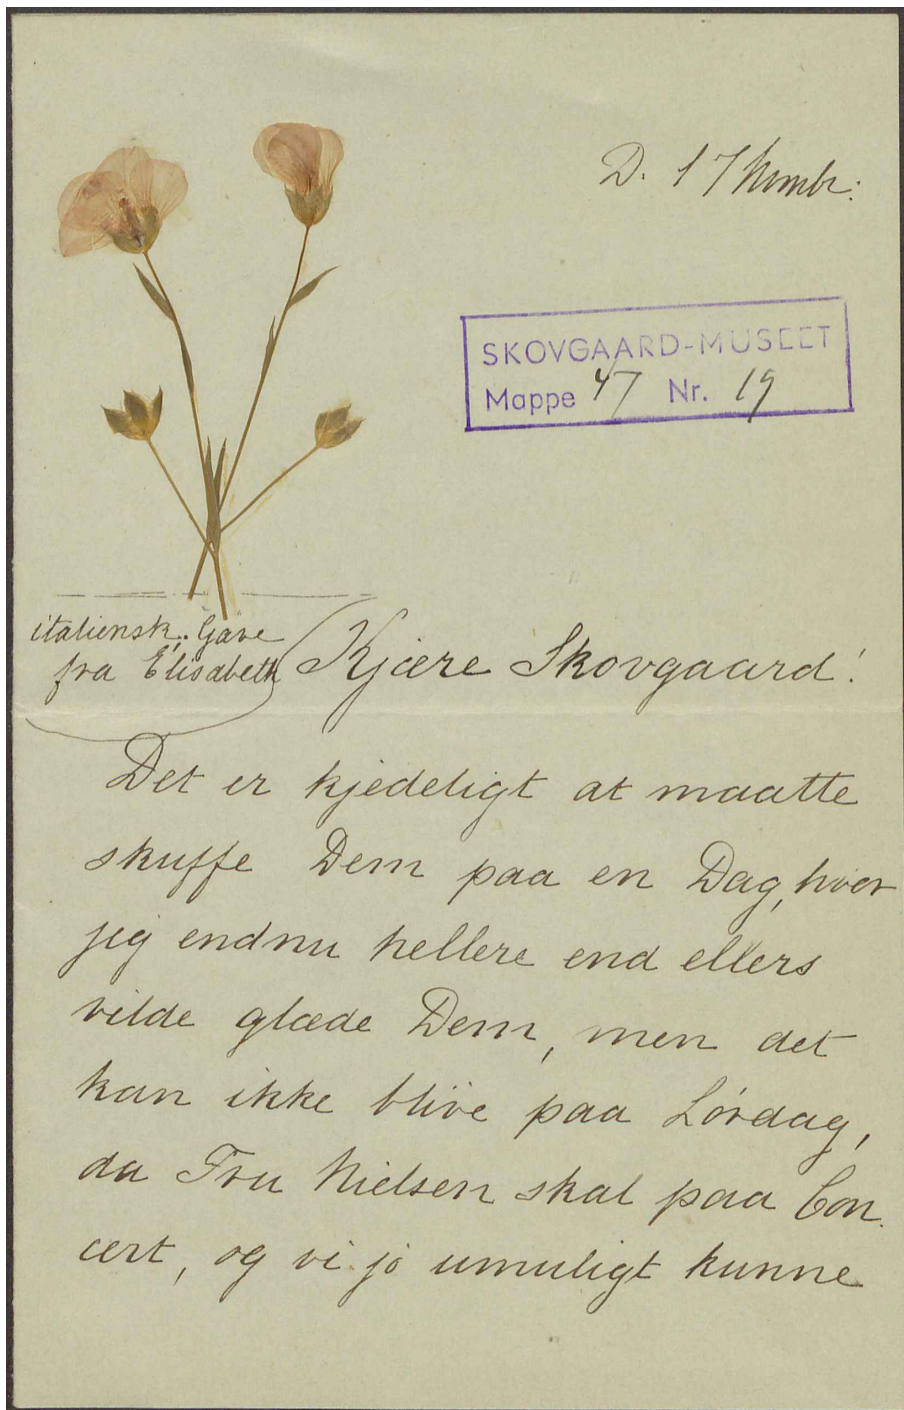 D. 17 Novmbr:
SKOVGAARD-MUSEET
Mappe 47 Nr. 19
italiensk, Gave
fra Elisabeth
Kjære Skovgaard!
Det er kjedeligt at maatte
skuffe Dem paa en Dag, hvor
jeg endnu hellere end ellers
vilde glæde Dem, men det
kan ikke blive paa Lørdag,
da Fru Nielsen skal paa Con
cert, og vi jo umuligt kunne